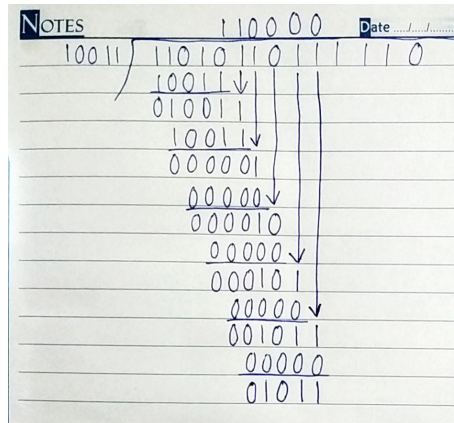 NOTES 110000 Date ..../..../........
10011 11010110111110
10011
010011
10011
000001
00000
000010
00000
000101
00000
001011
00000
01011